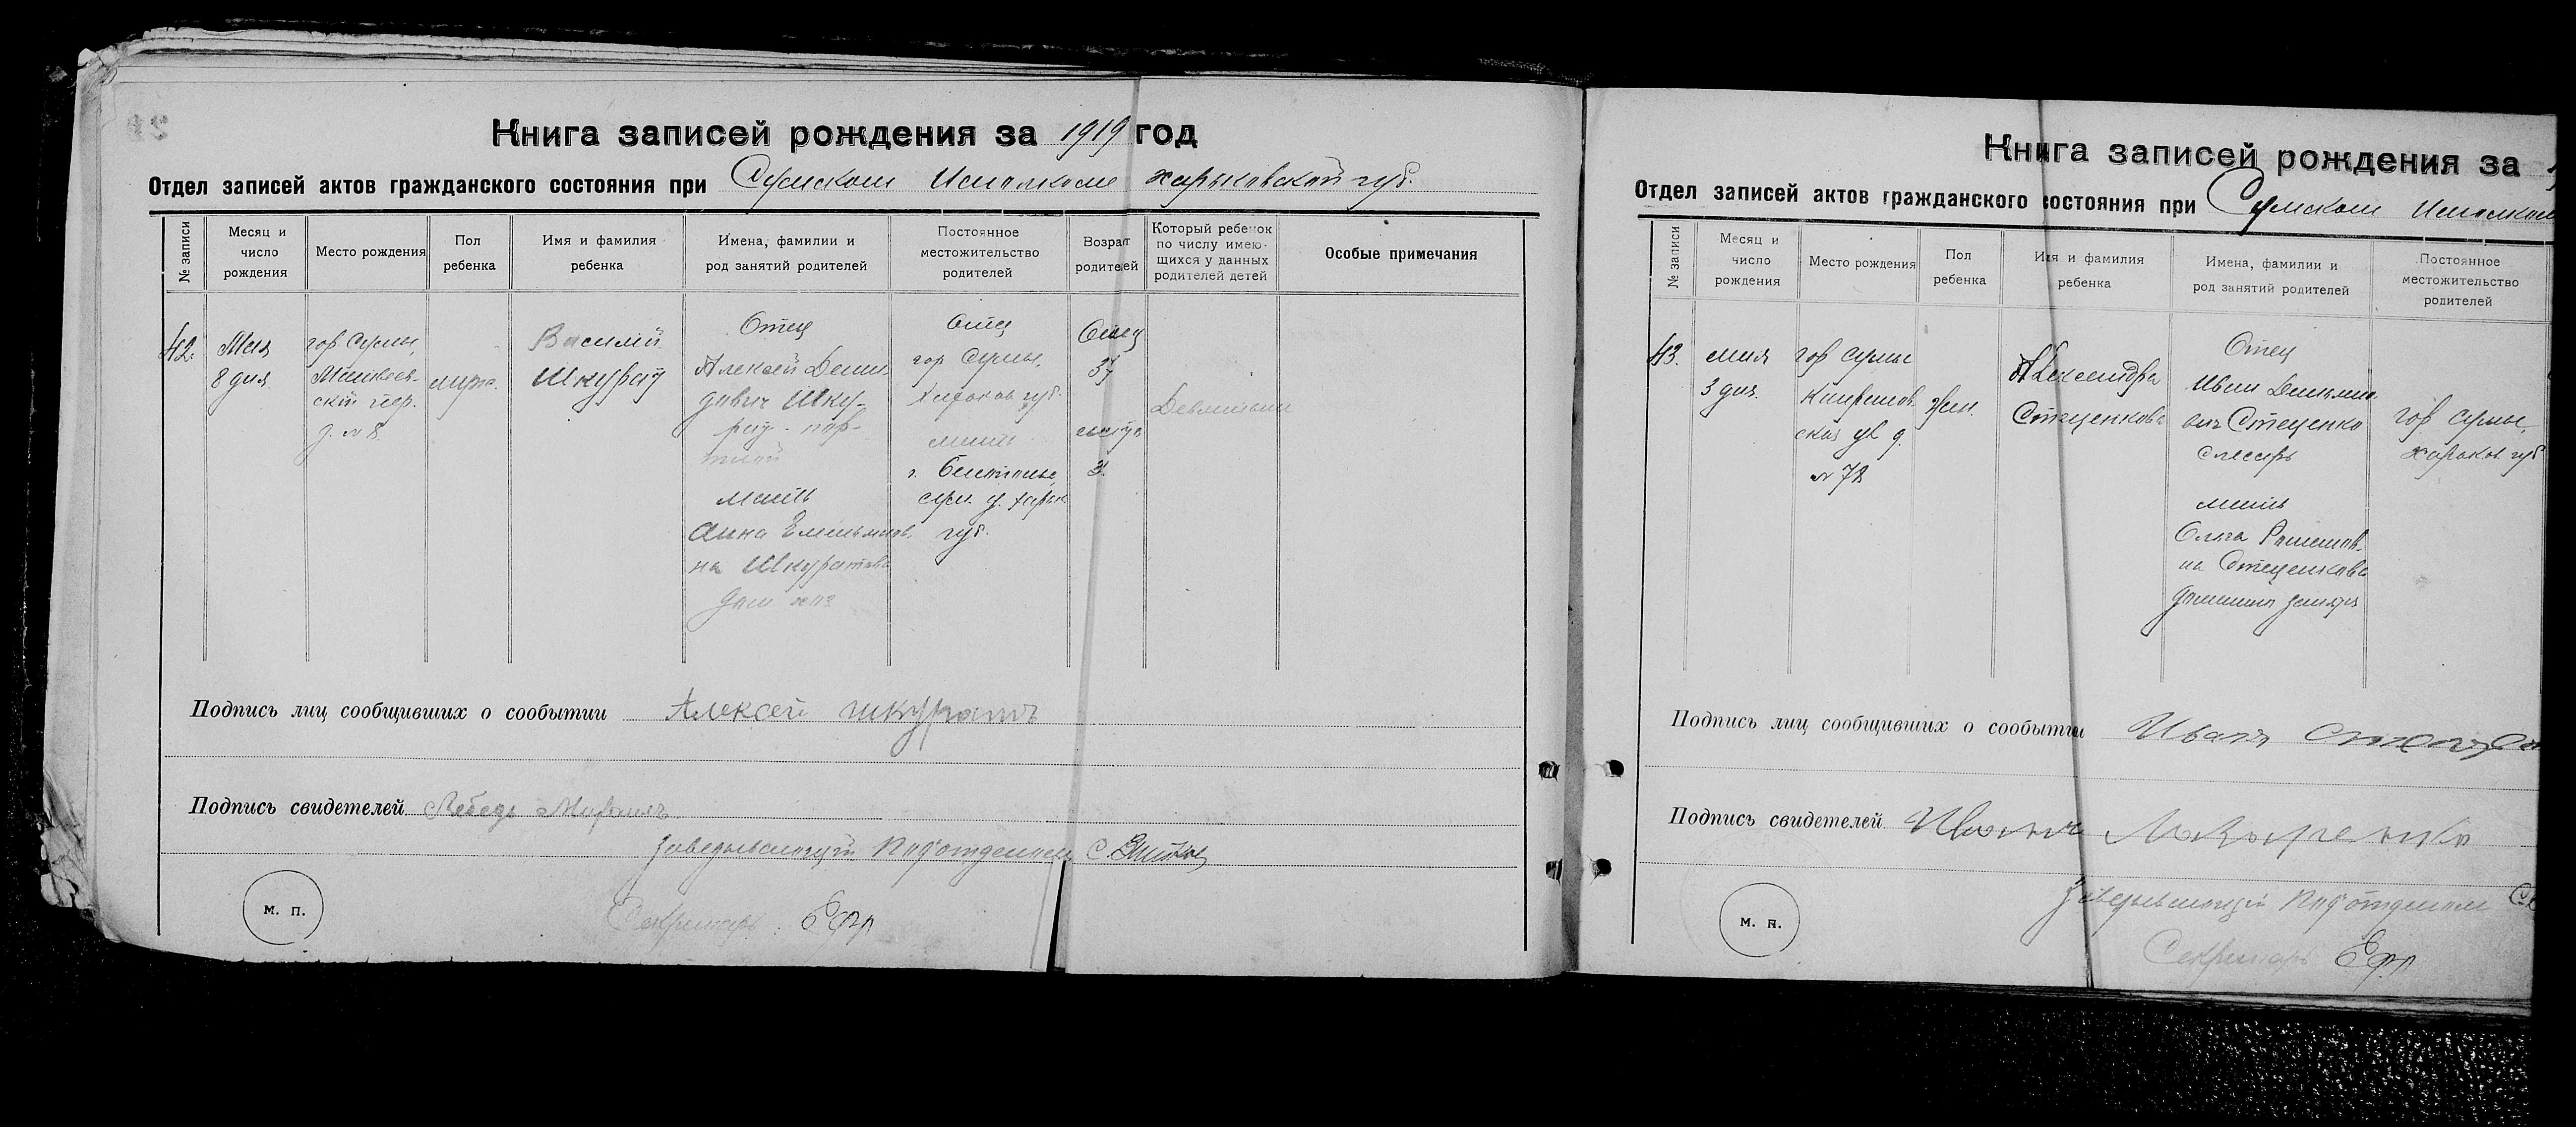 Книга записей рождения за 1919 год
Отдел записей актов гражданского состояния при Сумском Исполкоме Харьковской губ.
№ записи
Месяц и
число
рождения
Место рождения
Пол
ребенка
Имя и фамилия
ребенка
Имена, фамилии и
род занятий родителей
Постоянное
местожительство
родителей
Возраст
родителей
Который ребенок
по числу имею-
щихся у данных
родителей детей
Особые примечания
42.
Мая
8 дня
гор Сумы,
ский пер.
д. № 8.
Василий
Шкурат
Отец
Алексей Деми-
дович Шку-
рат - пор-
тной
мать
Анна Емельянов-
на Шкуратова
дом хоз
Отец
гор Сумы,
Харьков губ.
мать
сум. у. харьк
губ.
Отец
37
мать
Подпись лиц сообщивших о сообытии Алексей шкуратъ
Подпись свидетелей Лебедь
Заведывающий Подотделом С.
Секретарь
м. п.
Книга записей рождения за 1
Отдел записей актов гражданского состояния при Сумском Исполком
№ записи
Месяц и
число
рождения
Место рождения
Пол
ребенка
Имя и фамилия
ребенка
Имена, фамилии и
род занятий родителей
Постоянное
местожительство
родителей
43.
мая
3 дня
гор Сумы
ская ул д.
№ 72
жен.
Александра
Стеценкова
Отец
Иван
вич Стеценко
слесарь
мать
Ольга Романов-
на Стеценкова
гор Сумы,
Харьков губ
Подпись лиц сообщивших о сообытии Иванъ
Подпись свидетелей Иванъ
Заведывающий Подотделом С
Секретарь
м. п.